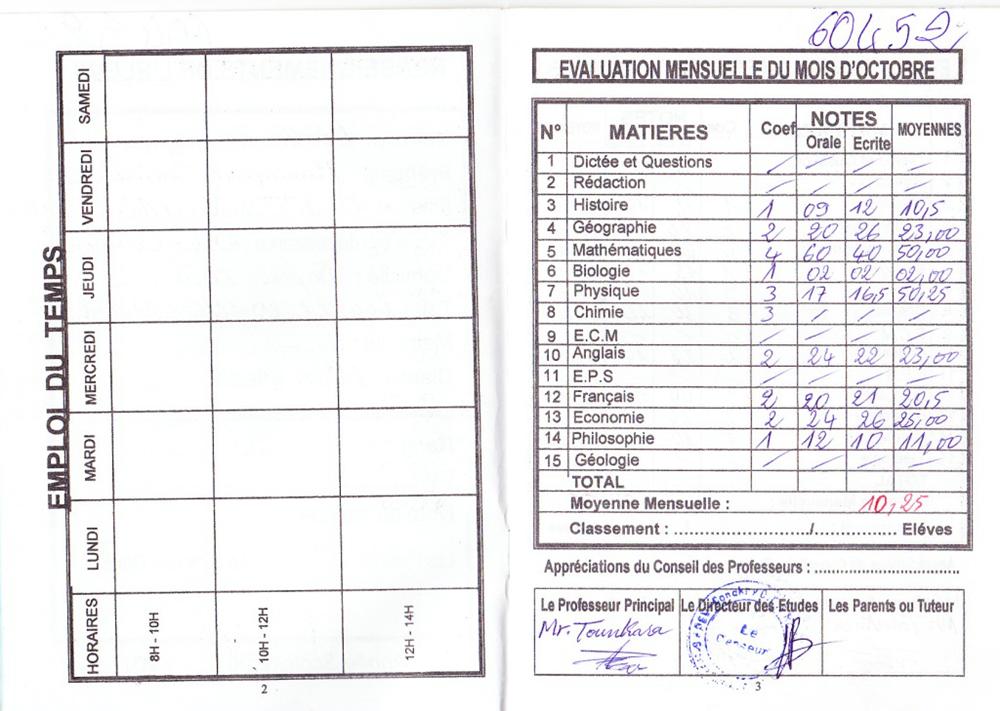 EMPLOI DU TEMPS
HORAIRES LUNDI MARDI MERCREDI JEUDI VENDREDI SAMEDI
8H - 10H
10H - 12H
12H - 14H
2
60452
EVALUATION MENSUELLE DU MOIS D'OCTOBRE
N° MATIERES Coef NOTES MOYENNES
Orale Ecrite
1 Dictée et Questions / / / /
2 Rédaction / / / /
3 Histoire 1 09 12 10,5
4 Géographie 2 20 26 23,00
5 Mathématiques 4 60 40 50,00
6 Biologie 1 02 02 02,00
7 Physique 3 17 16,5 50,25
8 Chimie 3 / / /
9 E.C.M / / / /
10 Anglais 2 24 22 23,00
11 E.P.S / / / /
12 Français 2 20 21 20,5
13 Economie 2 24 26 25,00
14 Philosophie 1 12 10 11,00
15 Géologie / / / /
TOTAL
Moyenne Mensuelle : 10,25
Classement : ..................../................ Eléves
Appréciations du Conseil des Professeurs : ..............................
Le Professeur Principal Le Directeur des Etudes Les Parents ou Tuteur
Mr. Tounkara
Conakry
Le
Censeur
3